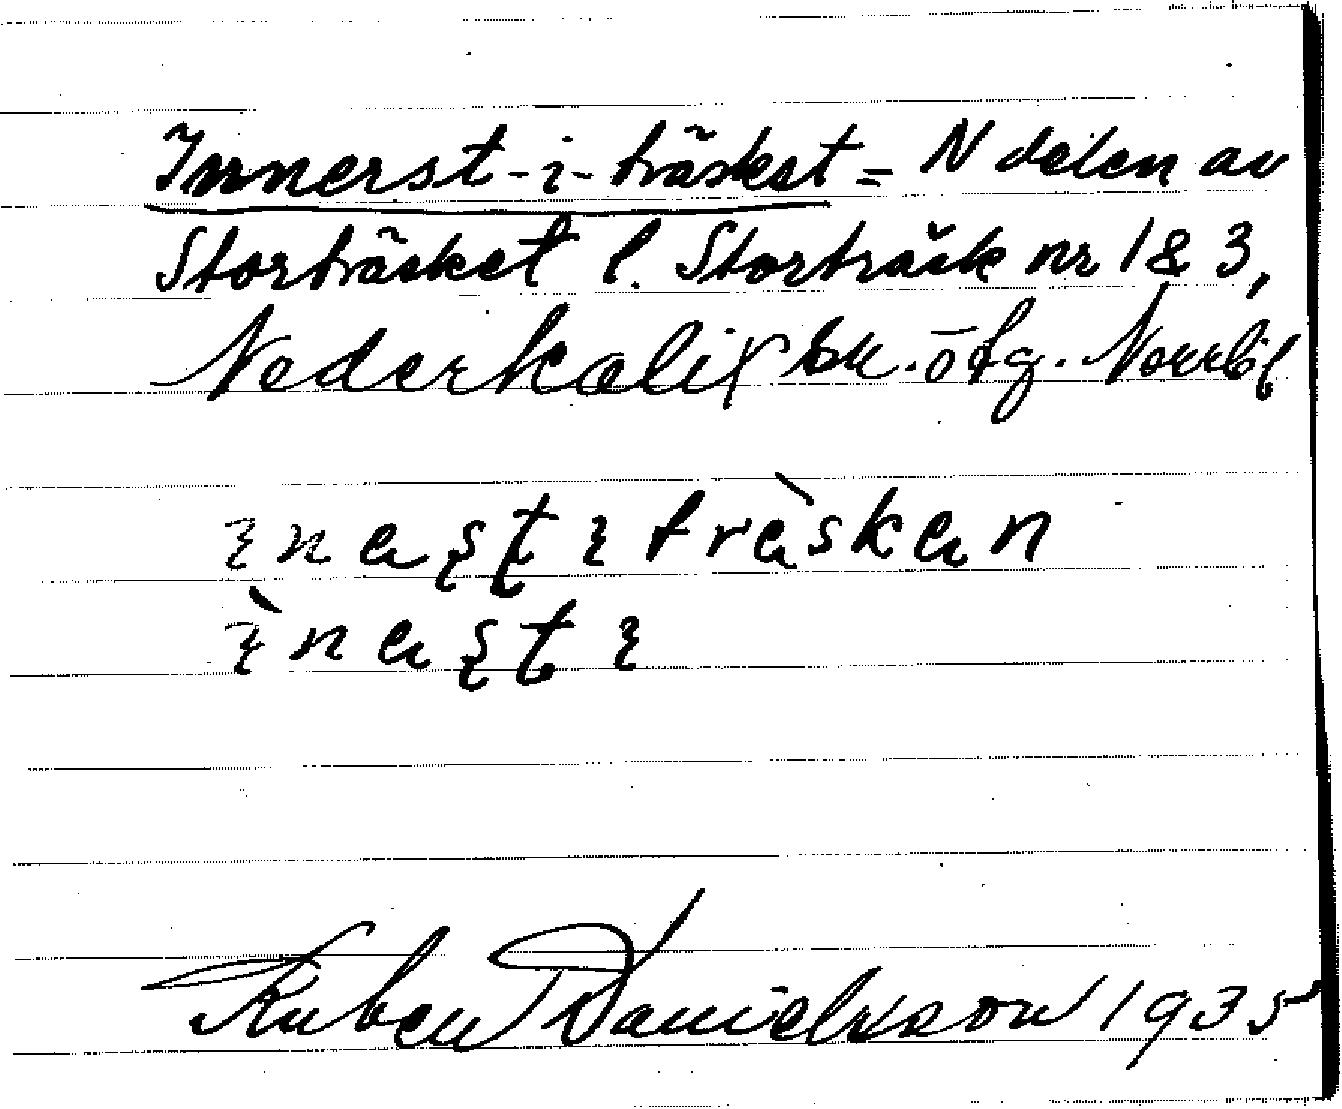 Innerst-i-träsket = N delen av
Storträsket l. Storträsk nr 1 & 3,
Nederkalix sn. ö tg. Norrb. l
Ruben Danielsson 1935